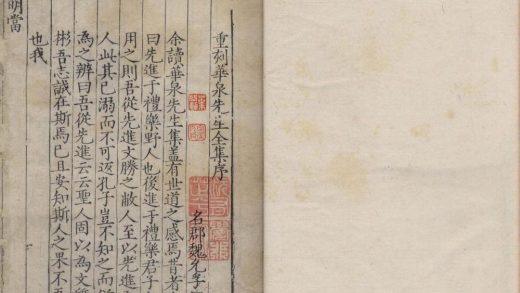 重刻華泉先生全集序
名郡魏允孚
余讀華泉先生集蓋有世道之感焉昔者
曰先進于禮樂野人也後進于禮樂君子
用之則吾從先進文勝之敝人至以先進
人此其已溺而不可返孔子豈不知之而
為之辨曰吾從先進云云聖人固以為文質
彬吾志誠在斯焉已且安知斯人之果不
也我
明當